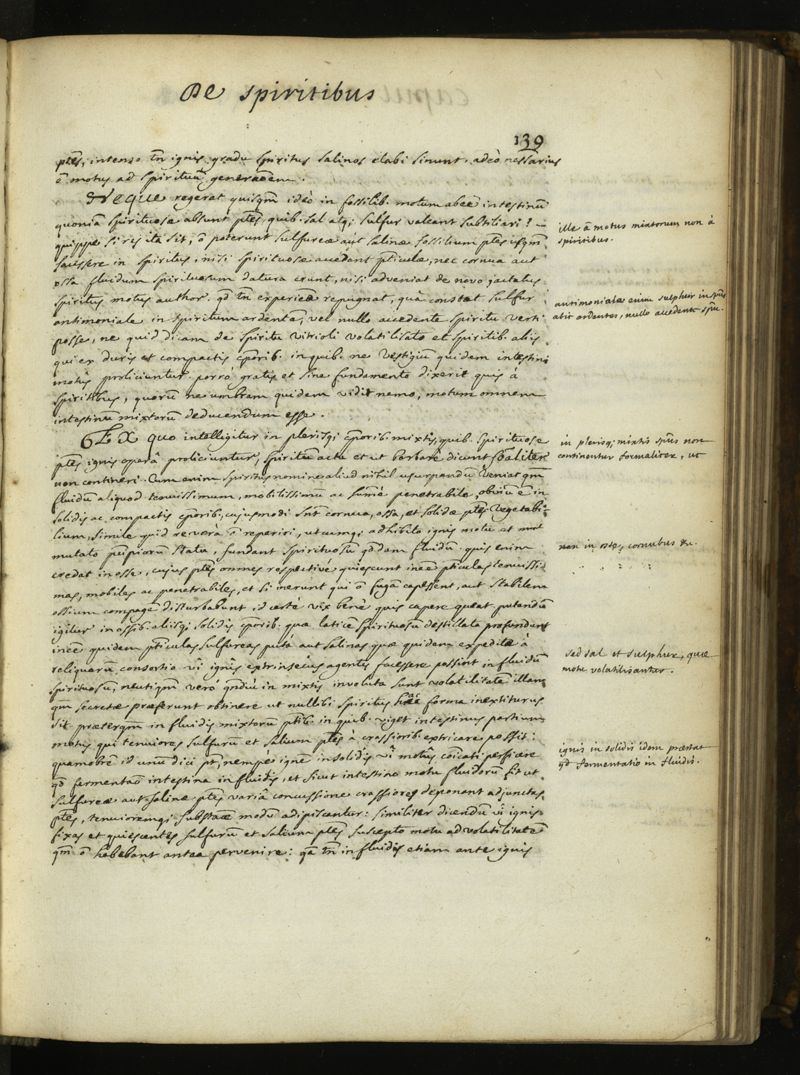 De spiritibus
139
ptes, intenso tn ignis gradu spiritus salinos elabi sinunt. adeò nessarius
ē motus ad spirituū generaōem.
Neque regerat quisqm ideò in fossilib. motum abee intestinū
quoniā spirituosae absunt ptes quib. sal atqj sulfur valeant subtiliari? –
quippe si res ita sit, ō poterunt sulfureae aut salinae fossilium ptes usqm
facessere in spiritus, nisi spirituosae accedant pticulae, nec cornua aut
ossa fluidum spirituosum datura erunt, nisi adveniat de novo jactatus
spiritus motus author. qd tn experieae repugnat, quâ constat sulfur
antimoniale in spiritum ardentem, vel nullo accedente spiritu verti
posse, ne quid dicam de spiritu vitrioli volatilisato et spiritib. aliis
qui ex duris et compactis cporib. in quib. ne vestigiū quidem intestini
motûs proliciuntur. porrò gratis et sine fundamento dixerit quis à
spiritibus, quorū ne umbram quidem vidit nemo, motum omnem
intestinū mixtorū deducendum esse.
Ex quo intelligitur in plerisqj cporib. mixtis, quib. spirituosae
ptes ignis operâ proliciuntur, spiritus actu et ut barbarè dicunt formaliter
non contineri. Cum enim spiritus nomine aliud nihil usurpandū veniat qm
fluidū aliquod tenuissimum, mobilissimū ac summè penetrabile, obviū ē in
solidis ac compactis cporib. cujusmodi snt cornua, ossa, et solidae ptes vegetabi-
lium, simile quid reverâ ō reperiri, utcumqj adhibito ignis motu et mox
mutato pcipiorū statu, fundant spirituosū qddam fluidū. quis enim
credat inesse, cujus ptes omnes respective quiescunt ineē pticulas tenuissi-
mas, mobiles ac penetrabiles, et si inerunt qui ō fugā capessent, aut stabilem
ossium compagē disturbabunt, id certè vix benè quis capere queat. putandū
igitur in ossib. aliisqj solidis cporib. quae latice spirituosū destillata profundunt
ineē quidem pticulas sulfureas putà aut salinas quae quidem expeditae à
reliquarū consortio vi ignis extrinsecùs agentis facessere possint in fluidū
spirituosū, neutiqm verò qndiu in mixtis involuta sunt volatilitatē illam
qm secretae praeferunt obtinere ut nullibi spiritus hâc formâ inextiturus
sit praeterqm in fluidis mixtorum ptib. in quib. viget intestinus partium
motus qui tenuiores sulfurū et salium ptes à crassiorib. extricare possit:
quamobrē id unū dici pt, nempè ignē in solidis vi motûs coīcati perficere
qd fermentaō intestina in fluidis, et sicut intestino motu fluidorū fit ut
sulfureae aut salinae ptes variâ concussione crassiores deponant adjunctas
ptes, tenuioremqj substaae modū adipiscantur: similiter dicendū vi ignis
fixas et quiescentes sulfurū et salium ptes suscepto motu ad volatilitatē
qm ō habebant antea pervenire: qa tn in fluidis etiam ante ignis
ille ā motus mixtorum non à
spiritibus.
antimoniale enim sulphur in spūs
abit ardentes, nullo accedente spū.
in plerisqj mixtis spūs non
continentur formaliter, ut
non in osse, cornubus &c.
sed sal et sulphur, quae
motu volatilisantur.
ignis in solidis idem praestat
qd fermentatio in fluidis.